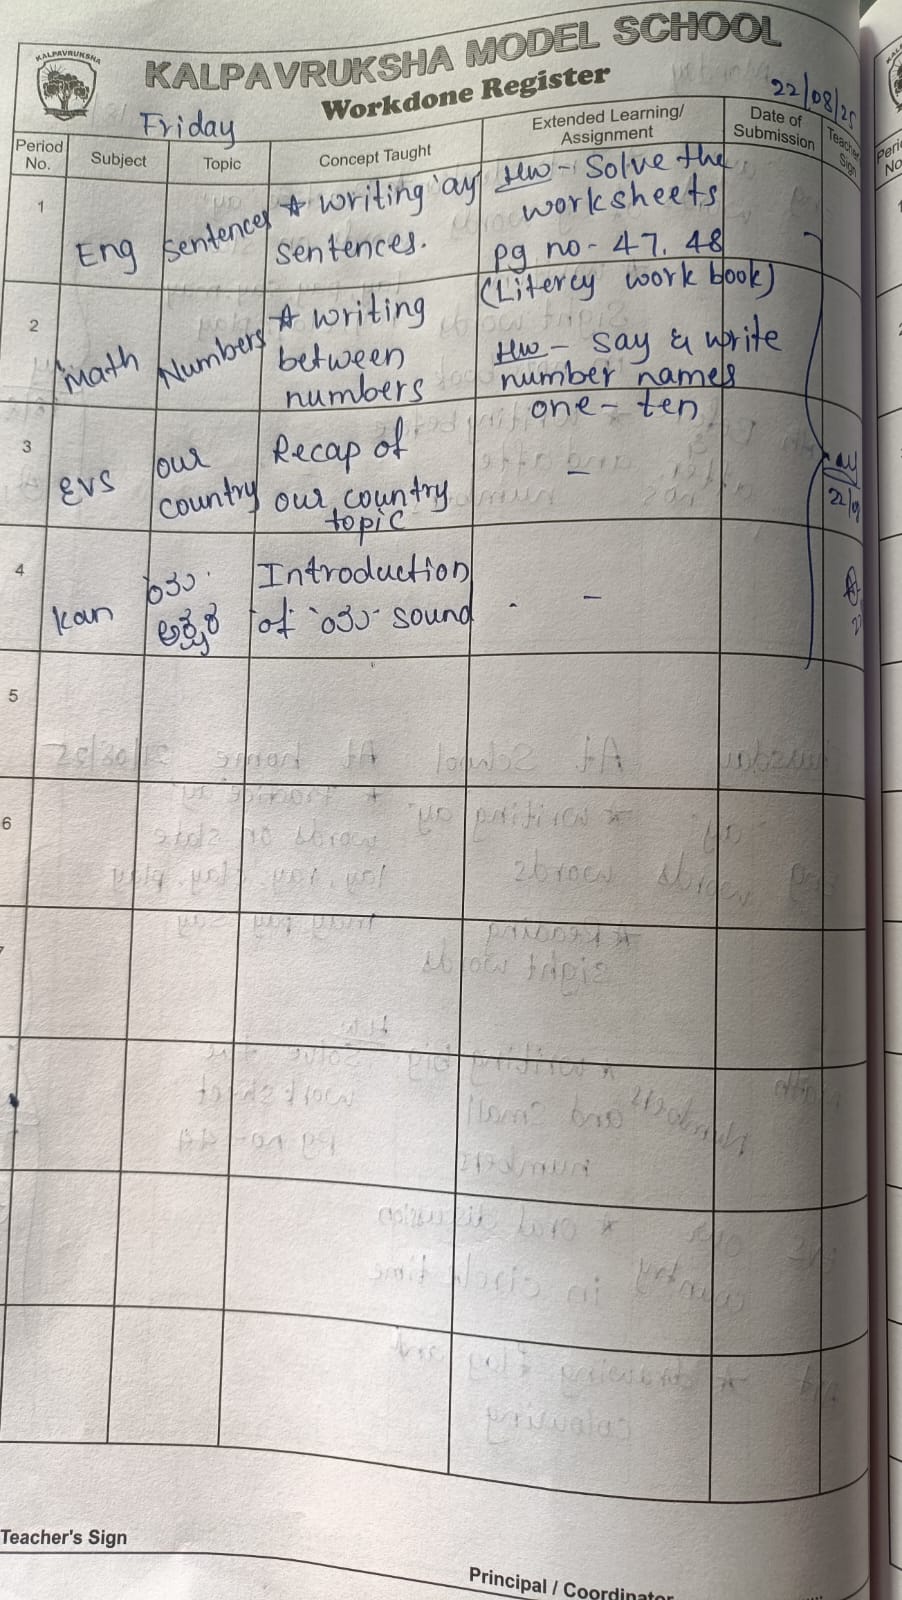 KALPAVRUKSHA
KALPAVRUKSHA MODEL SCHOOL
Workdone Register
Friday
22/08/25
Period No.
Subject
Topic
Concept Taught
Extended Learning/ Assignment
Date of Submission
Teacher Sign
1
Eng
sentences
☆ writing 'ay
sentences.
HW - Solve the
worksheets
pg no - 47, 48
(Litercy work book)
2
Math
Numbers
☆ writing
between
numbers
HW - say & write
number names
one - ten
3
EVS
our
country
Recap of
our country
topic
-
4
kan
ಅಕ್ಷರ
Introduction
of
sound
-
5
6
Teacher's Sign
Principal / Coordinator